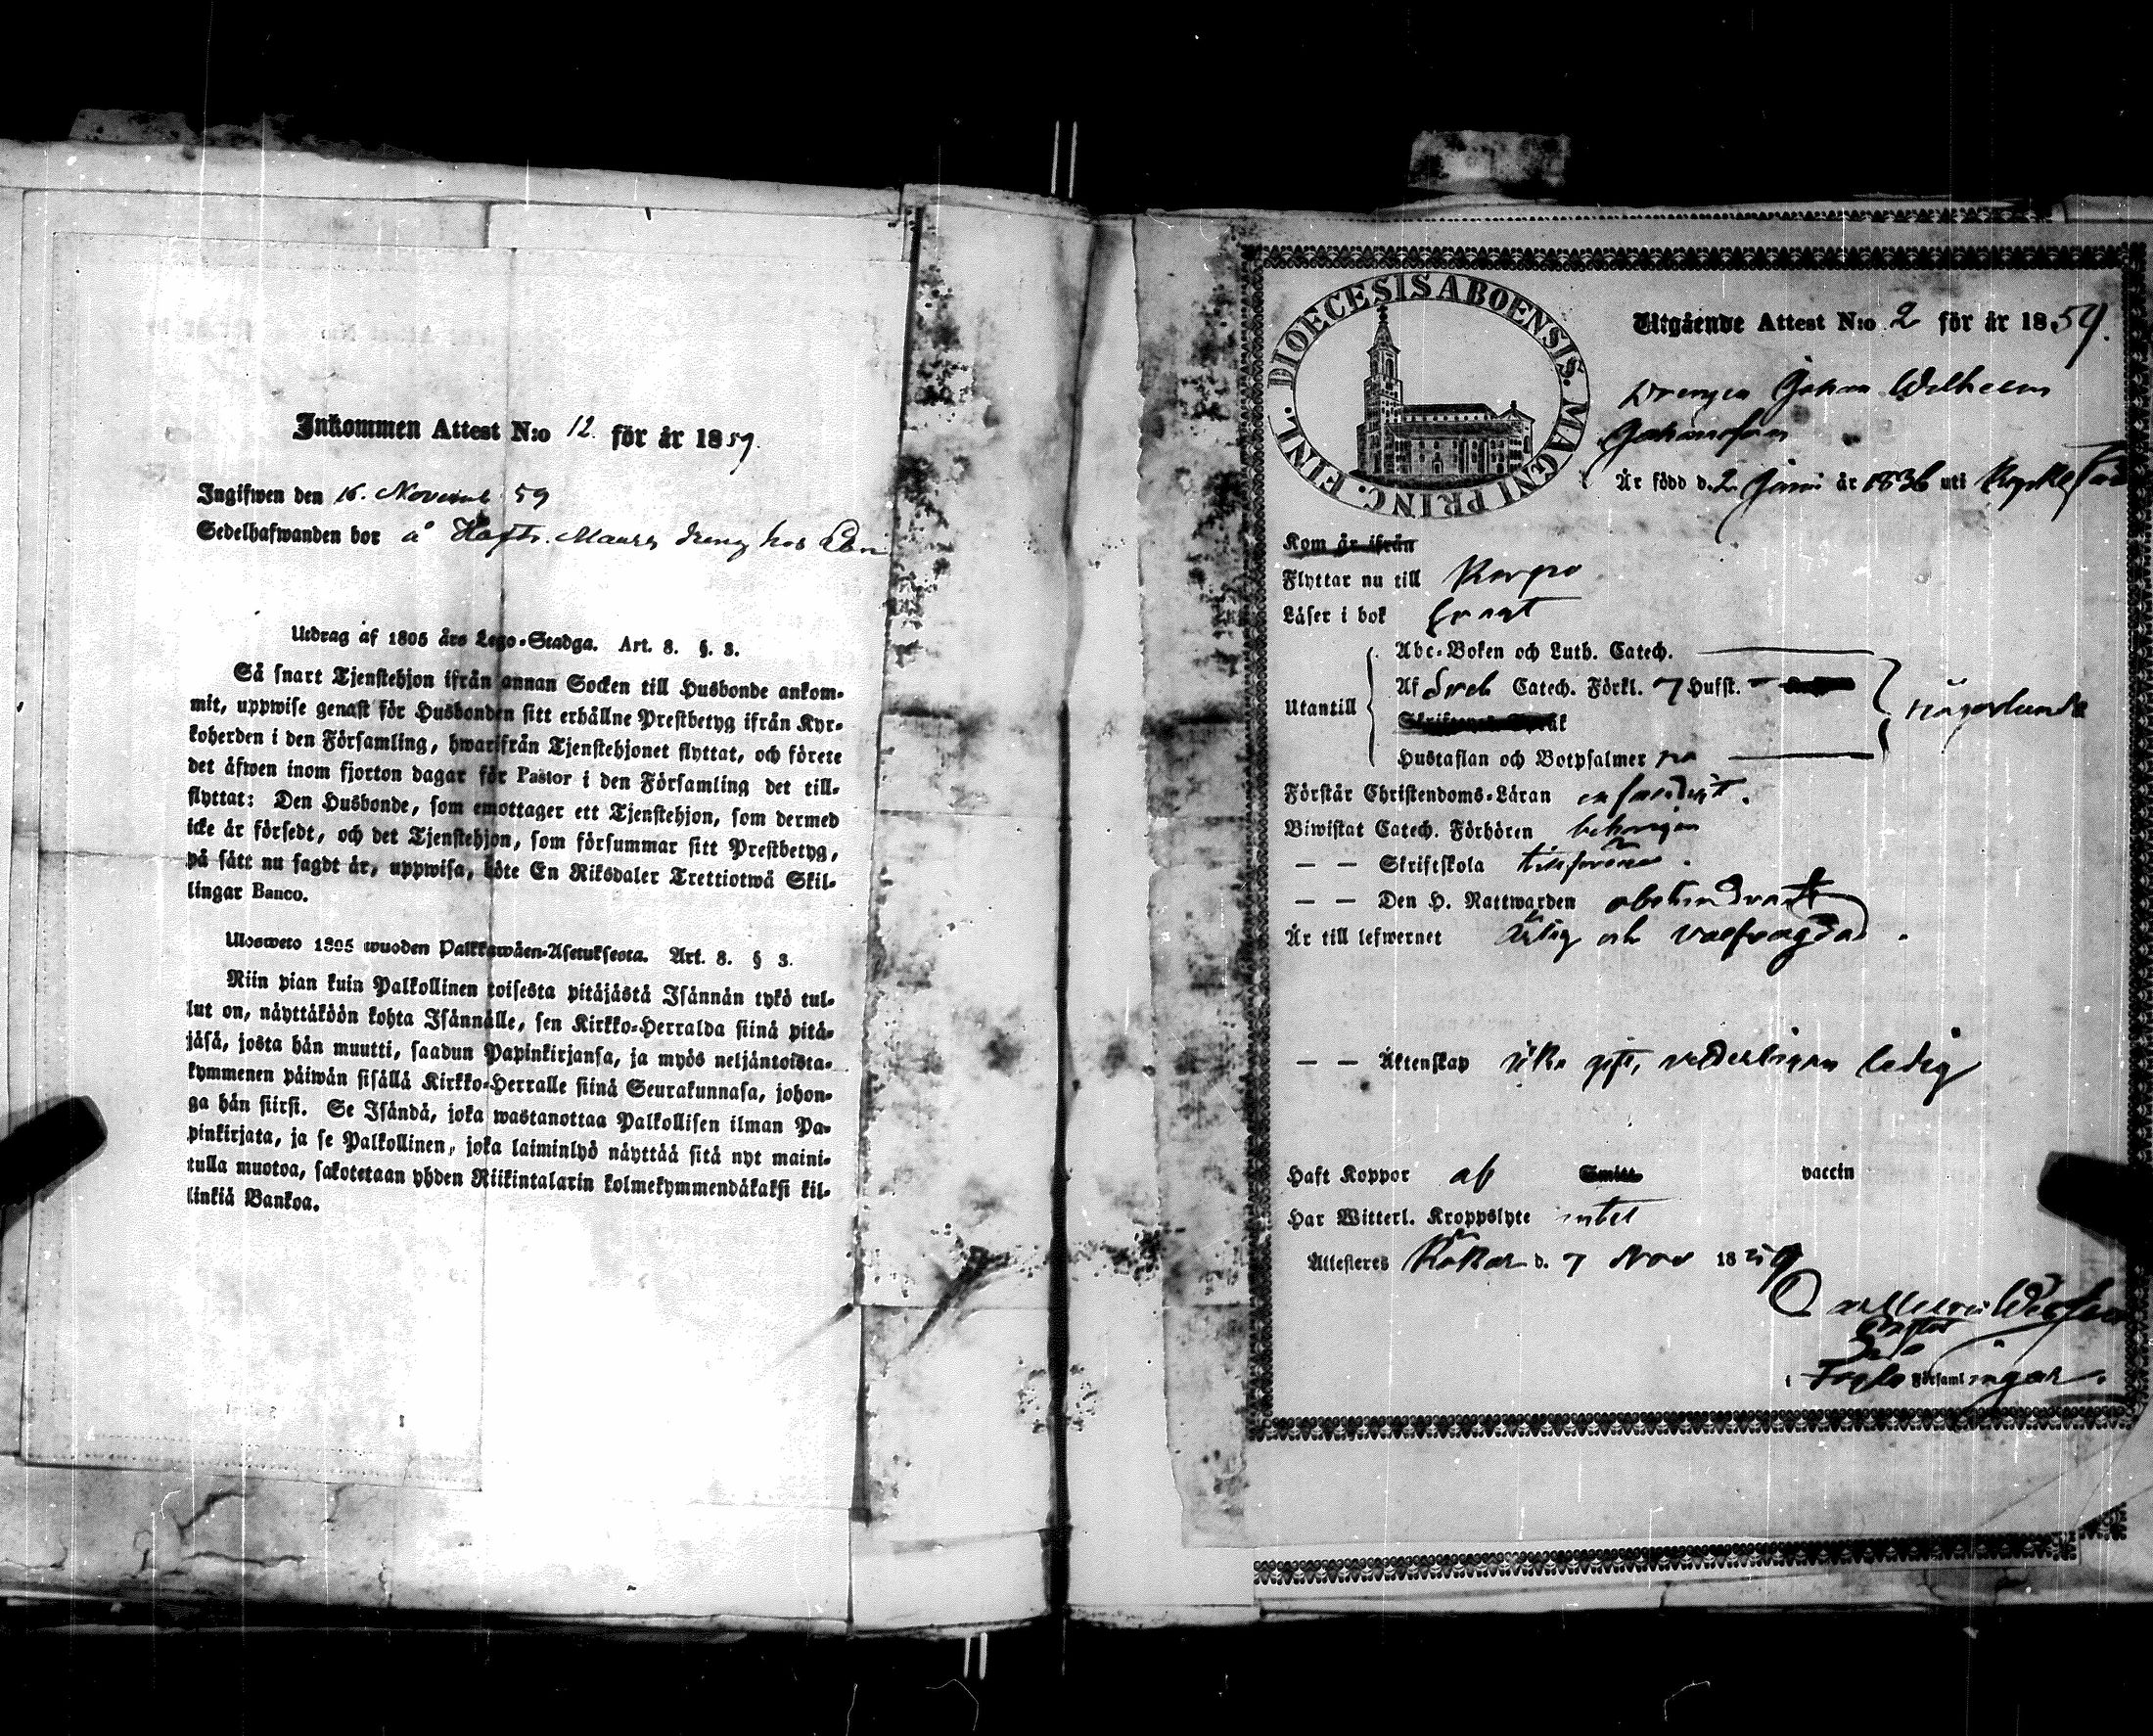 Inkommen Attest N:o 12. för år 1859.
Ingifwen den 16. Novemb 59
Sedelhafwanden bor å Hafts. Maurs dreng hos
Utdrag af 1805 års Lego-Stadga. Art. 8. §. 3.
Så snart Tjenstehjon ifrån annan Socken till Husbonde ankom-
mit, uppwise genast för Husbonden sitt erhållne Prestbetyg ifrån Kyr-
koherden i den Församling, hwarifrån Tjenstehjonet flyttat, och förete
det äfwen inom fjorton dagar för Pastor i den Församling det till-
flyttat: Den Husbonde, som emottager ett Tjenstehjon, som dermed
icke är försedt, och det Tjenstehjon, som försummar sitt Prestbetyg,
på sätt nu sagdt är, uppwisa, böte En Riksdaler Trettiotwå Skil-
lingar Banco.
Ulosweto 1805 wuoden Palkkawäen-Asetuksesta. Art. 8. § 3.
Niin pian kuin Palkollinen toisesta pitäjästä Isännän tykö tul-
lut on, näyttäköön kohta Isännälle, sen Kirkko-Herralda siinä pitä-
jäsä, josta hän muutti, saadun Papinkirjansa, ja myös neljäntoista-
kymmenen päiwän sisällä Kirkko-Herralle siinä Seurakunnasa, johon-
ga hän siirsi. Se Isändä, joka wastanottaa Palkollisen ilman Pa-
pinkirjata, ja se Palkollinen, joka laiminlyö näyttää sitä nyt maini-
tulla muotoa, sakotetaan yhden Riikintalarin kolmekymmendäkaksi kil-
linkiä Bankoa.
DIOECESIS ABOENSIS. MAGNI PRINC. FINL.
Utgående Attest N:o 2 för år 1859.
Drengen Johan Wilhelm
Johansson
Är född d. 2 Juni år 1836 uti
Kom år ifrån
Flyttar nu till Korpo
Läser i bok svagt
Abc-Boken och Luth. Catech.
Utantill
Af Sveb Catech. Förkl. 7 Hufst.
någorlunda
Hustaflan och Botpsalmer
Förstår Christendoms-Läran enfaldigt.
Biwistat Catech. Förhören behörigen
— — Skriftskola tillförene.
— — Den H. Nattwarden obehindradt
Är till lefwernet ärlig och välfrägdad.
— — Äktenskap icke gift, vederligen ledig
Haft Koppor af vaccin
Har Witterl. Kroppslyte intet
Attesteres Kökar d. 7 Nov 1859
Pastor
i Föglö Församlingar.